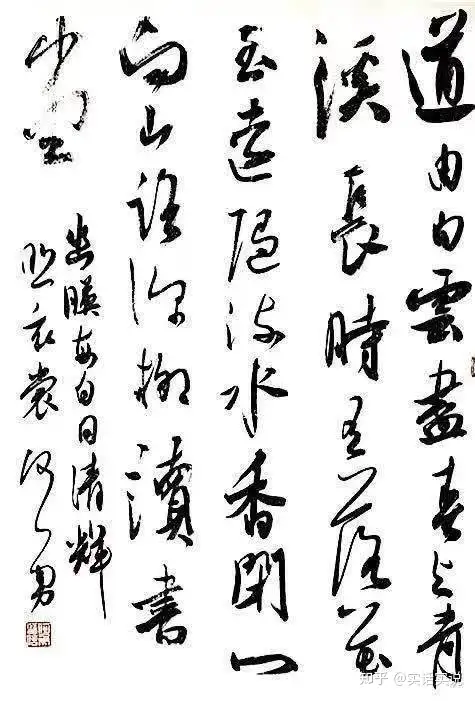 道由白雲盡春与青
溪長時有落花
至遠隨流水香閉门
向山路深柳讀書
堂
幽暎每白日清輝
照衣裳
知乎 @实话实说